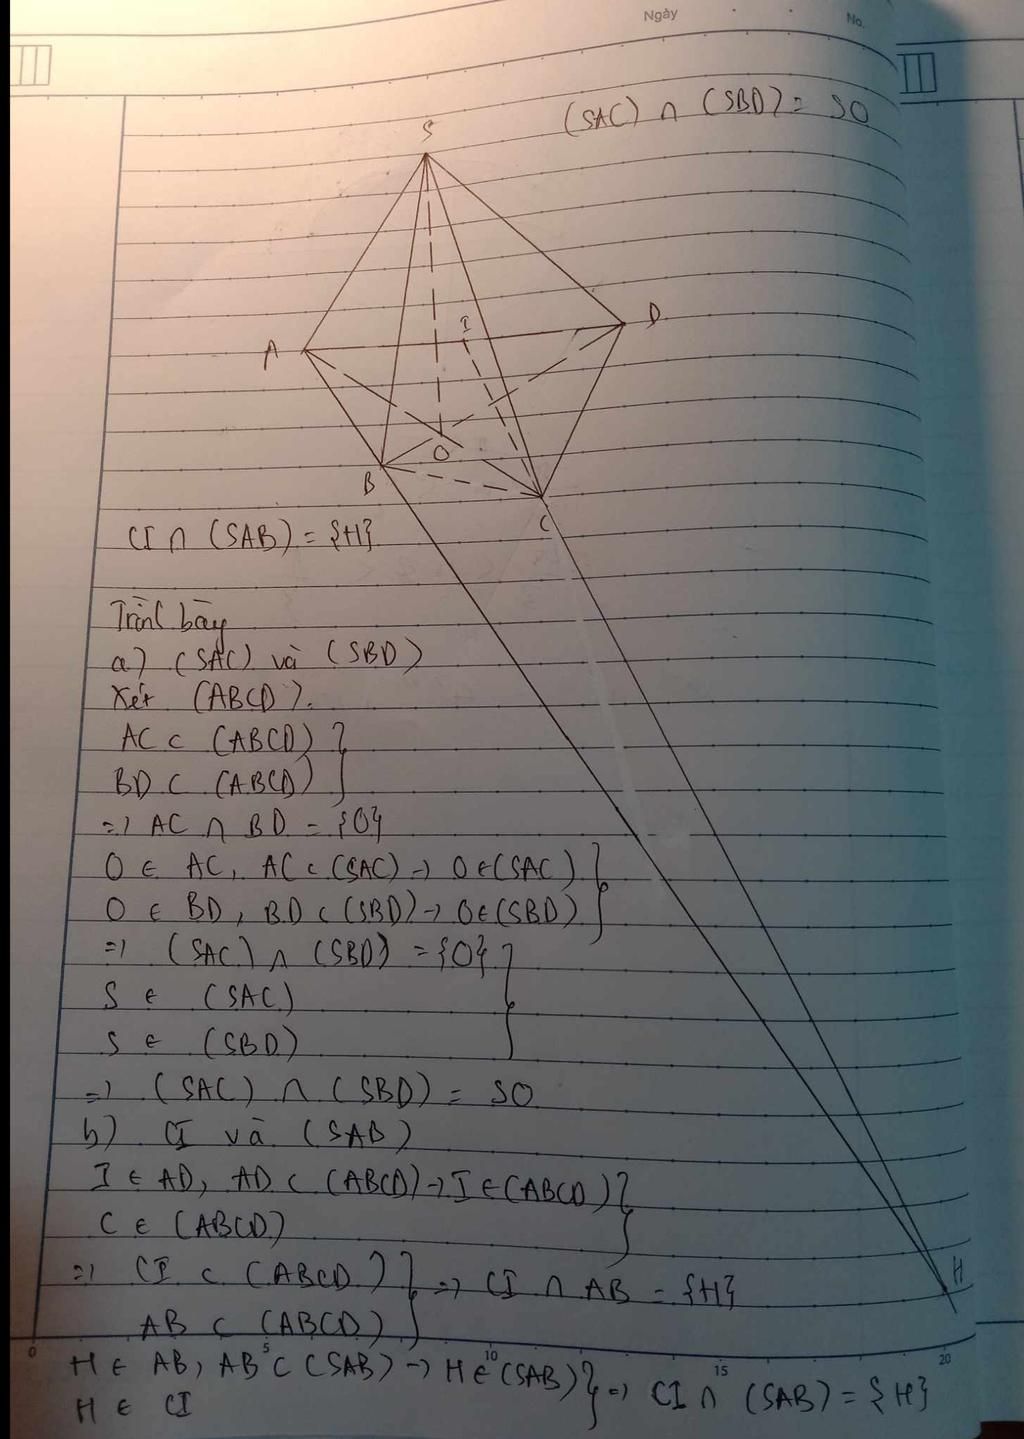 Ngày
No.
(SAC) ∩ (SBD) = SO
S
I
D
A
O
B
C
CI ∩ (SAB) = {H}
Trình bày
a) (SAC) và (SBD)
Xét (ABCD).
AC ⊂ (ABCD) }
BD ⊂ (ABCD) }
=> AC ∩ BD = {O}
O ∈ AC, AC ⊂ (SAC) → O ∈ (SAC) }
O ∈ BD, BD ⊂ (SBD) → O ∈ (SBD) }
=> (SAC) ∩ (SBD) = {O} }
S ∈ (SAC)
S ∈ (SBD)
=> (SAC) ∩ (SBD) = SO
b) CI và (SAB)
I ∈ AD, AD ⊂ (ABCD) → I ∈ (ABCD) }
C ∈ (ABCD)
=> CI ⊂ (ABCD) } => CI ∩ AB = {H}
H
AB ⊂ (ABCD) }
0 5 10 15 20
H ∈ AB, AB ⊂ (SAB) → H ∈ (SAB) } => CI ∩ (SAB) = {H}
H ∈ CI